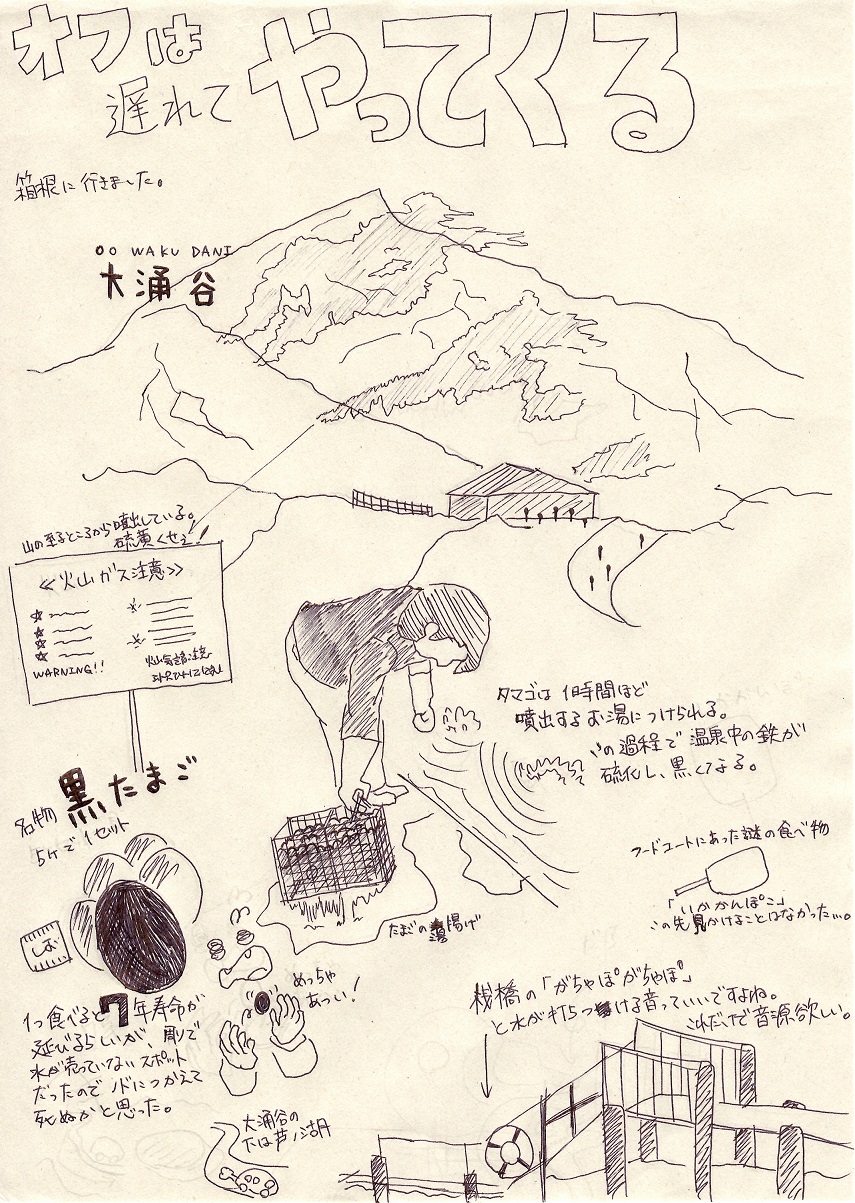 オフは
遅れて
やってくる
箱根に行きました。
OO WAKU DANI
大涌谷
山の至るところから噴出している。
硫黄くせぇ!
《火山ガス注意》
WARNING!!
タマゴは 1時間ほど
噴出するお湯につけられる。
の過程で温泉中の鉄が
硫化し、黒くなる。
名物
黒たまご
5ヶで1セット
しお
フードコートにあった謎の食べ物
「いかかんぽこ」
この先見かけることはなかった…。
たまごの湯揚げ
めっちゃ
あっい!
1つ食べると7年寿命が
延びるらしいが、
水が売っていないスポット
だったのでノドにつかえて
死ぬかと思った。
桟橋の「がちゃぽがちゃぽ」
と水が打ちつける音っていいですよね。
これだけで音源欲しい。
大涌谷の
芦ノ湖